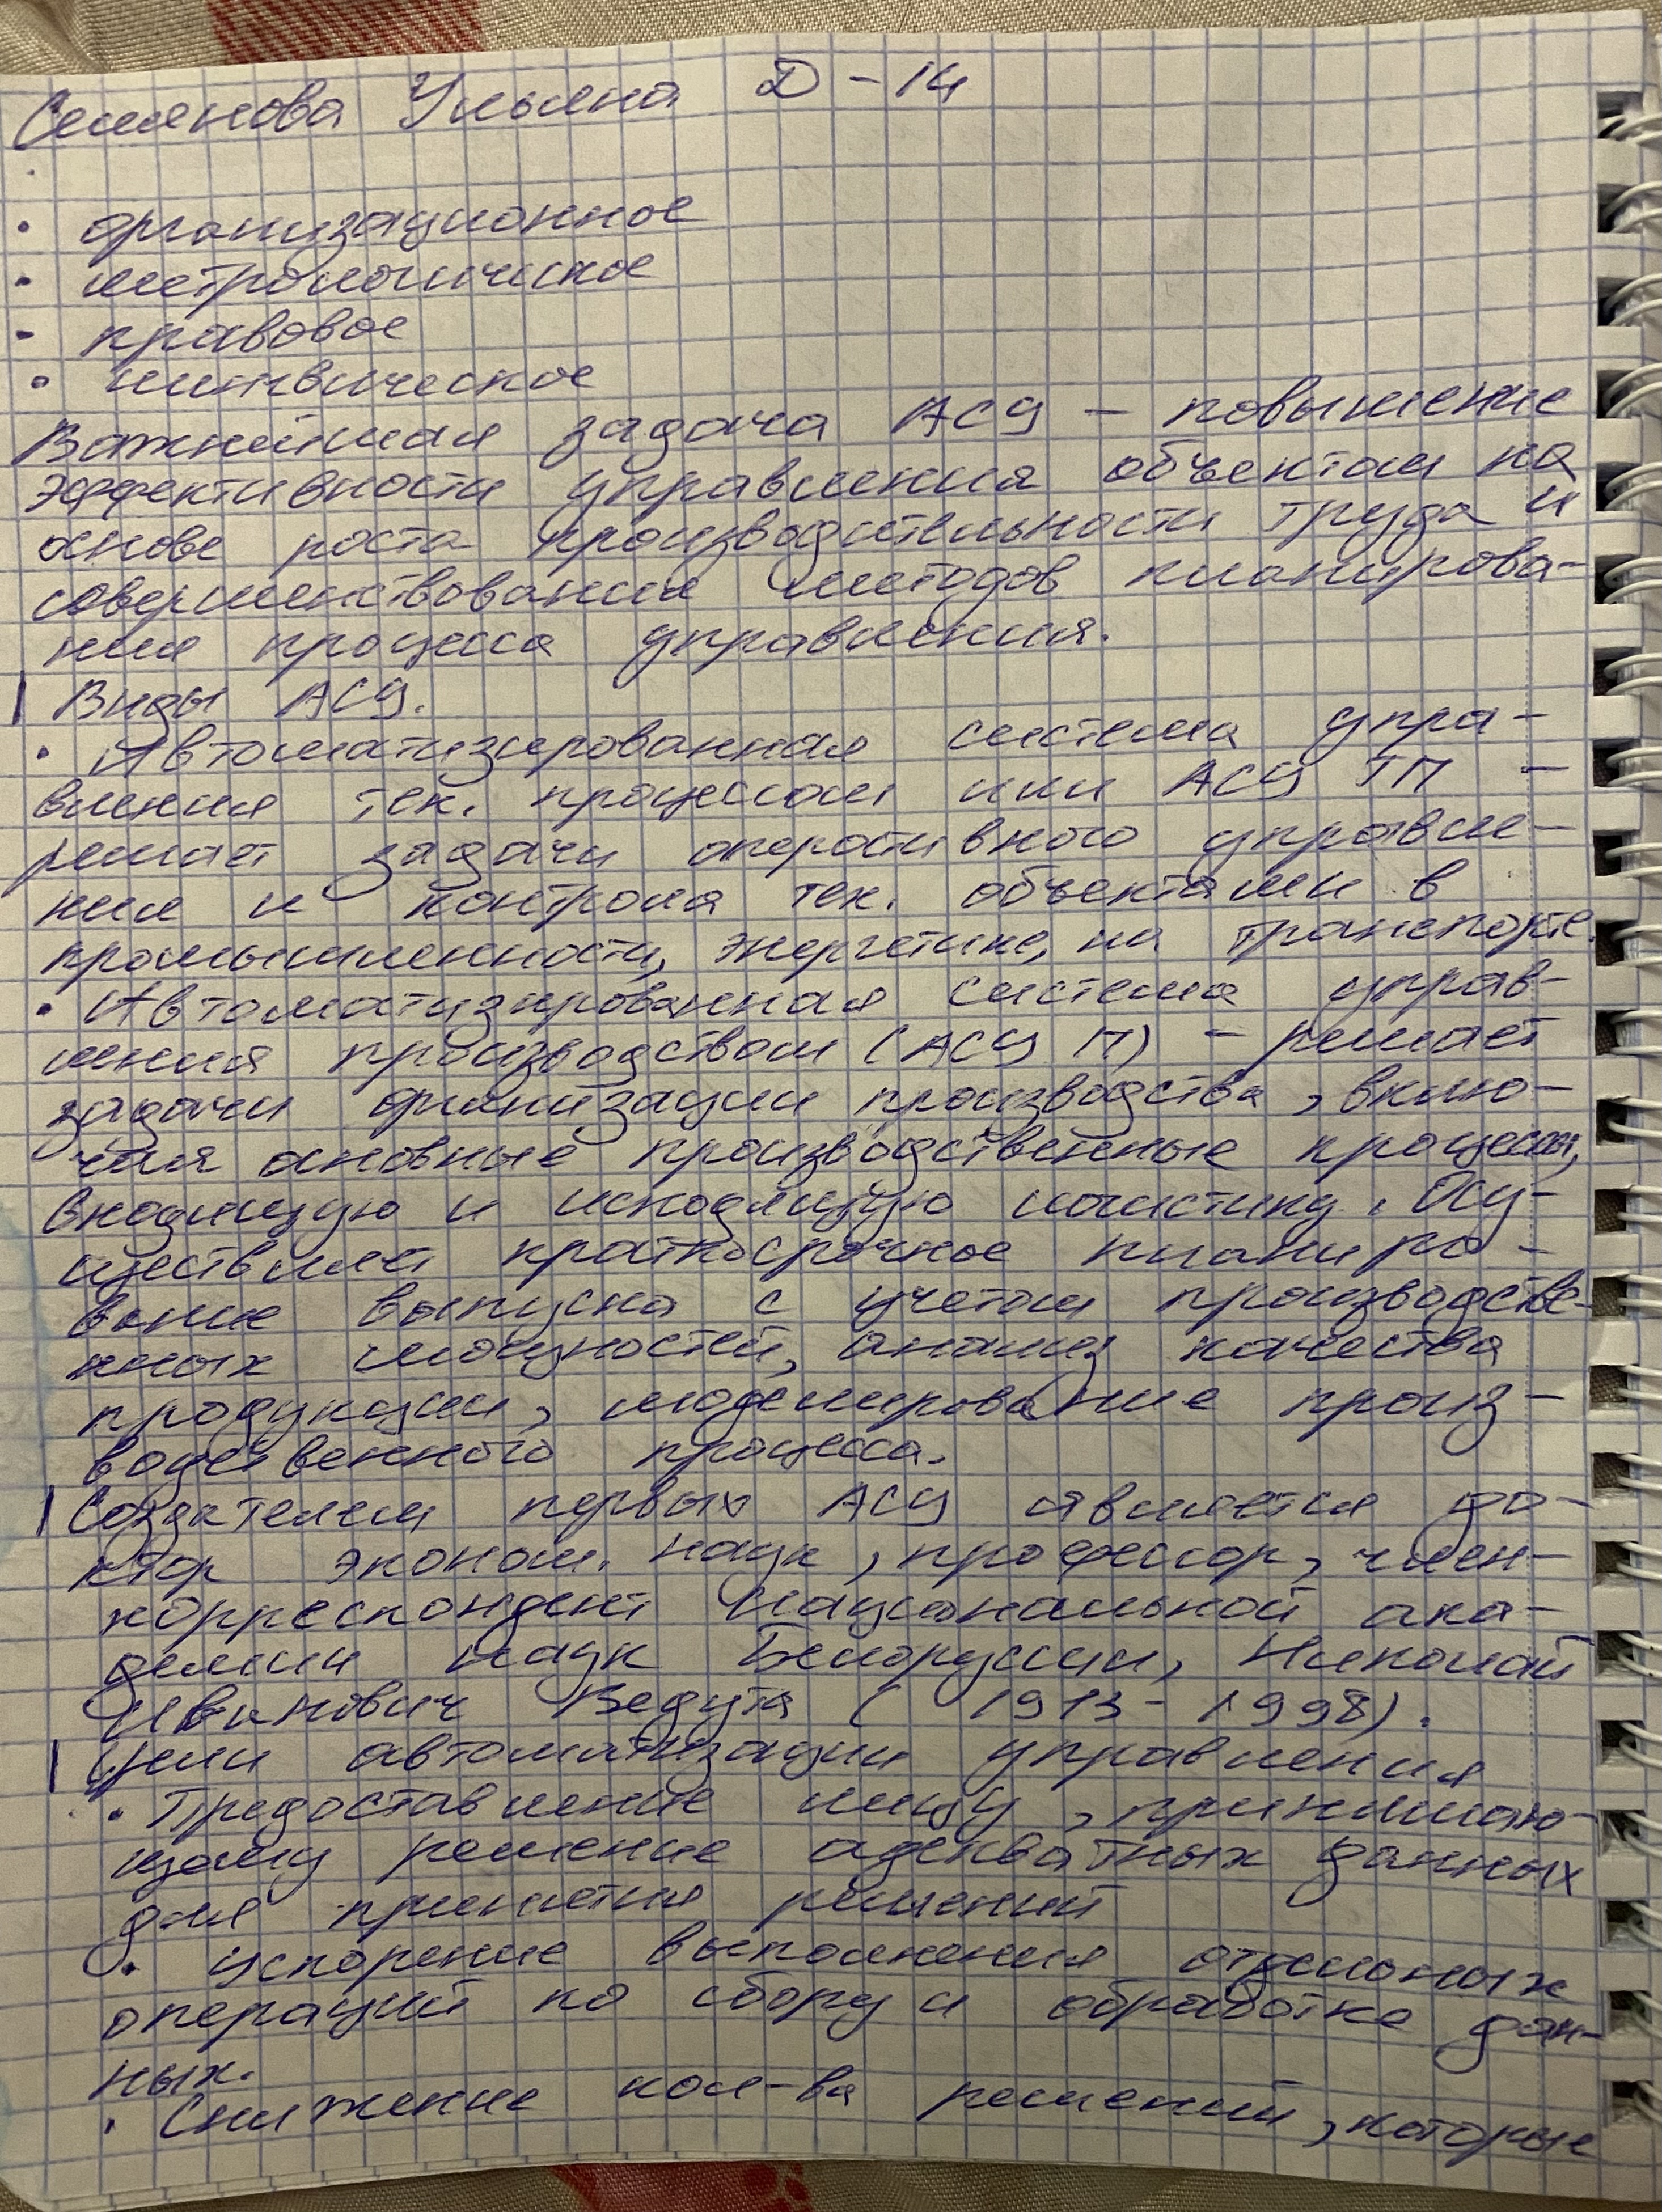 Семенова Ульяна Д-14
• организационное
• метрологическое
• правовое
• лингвическое
Важнейшая задача АСУ – повышение
эффективности управления объектом на
основе роста производительности труда и
совершенствования методов планирова-
ния процесса управления.
Виды АСУ.
• Автоматизированная система упра-
вления тех. процессом или АСУ ТП –
решает задачи оперативного управле-
ния и контроля тех. объектами в
промышленности, энергетике, на транспорте.
• Автоматизированная система управ-
ления производством (АСУ П) – решает
задачи организации производства, вклю-
чая основные производственные процессы,
входящую и исходящую логистику. Осу-
ществляет краткосрочное планиро-
вание выпуска с учетом производстве-
нных мощностей, анализ качества
продукции, моделирование произ-
водственного процесса.
Создателем первых АСУ является до-
ктор эконом. наук, профессор, член-
корреспондент Национальной ака-
демии наук Белоруссии, Николай
Иванович Ведута (1913-1998).
Цели автоматизации управления
• Предоставление лицу, принимаю-
щему решение адекватных данных
для принятия решений
• ускорение выполнения отдельных
операций по сбору и обработке дан-
ных.
• Снижение кол-ва решений, которые